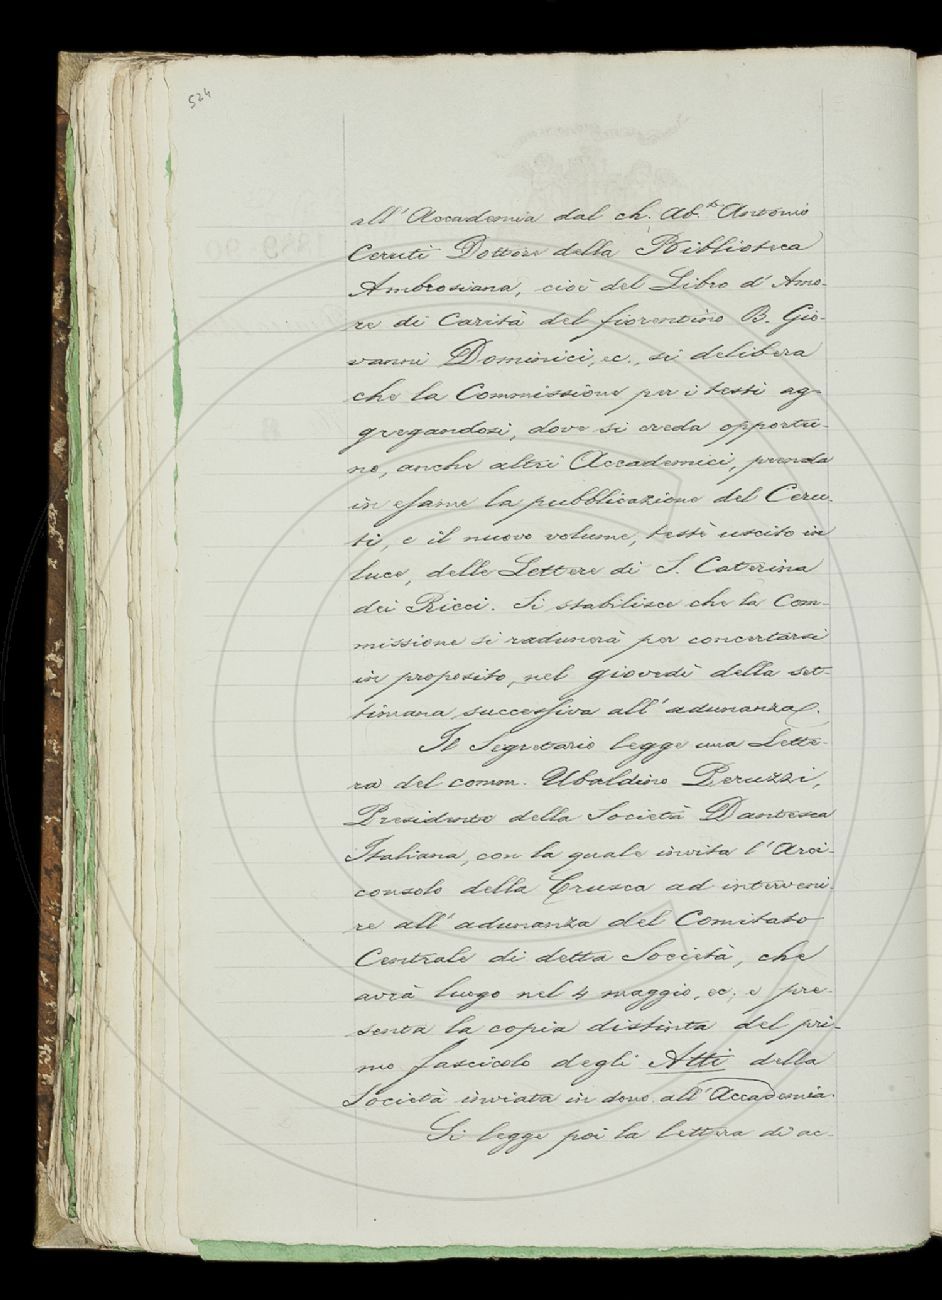 524
all' Accademia dal ch. Ab.te Antonio
Ceruti Dottore della Biblioteca
Ambrosiana, cioè del Libro d' Amo-
re di Carità del fiorentino B. Gio-
vanni Dominici, ec., si delibera
che la Commissione per i testi ag-
gregandosi, dove si creda opportu-
no, anche altri Accademici, prenda
in esame la pubblicazione del Ceru-
ti, e il nuovo volume, testè uscito in
luce, delle Lettere di S. Caterina
dei Ricci. Si stabilisce che la Com-
missione si radunerà per concertarsi
in proposito, nel giovedì della set-
timana successiva all' adunanza.
Il Segretario legge una Lette-
ra del comm. Ubaldino Peruzzi,
Presidente della Società Dantesca
Italiana, con la quale invita l' Arci-
consolo della Crusca ad interveni-
re all' adunanza del Comitato
Centrale di detta Società, che
avrà luogo nel 4 maggio, ec; e pre-
senta la copia distinta del pri-
mo fascicolo degli Atti della
Società inviata in dono all' Accademia.
Si legge poi la lettera di ac-